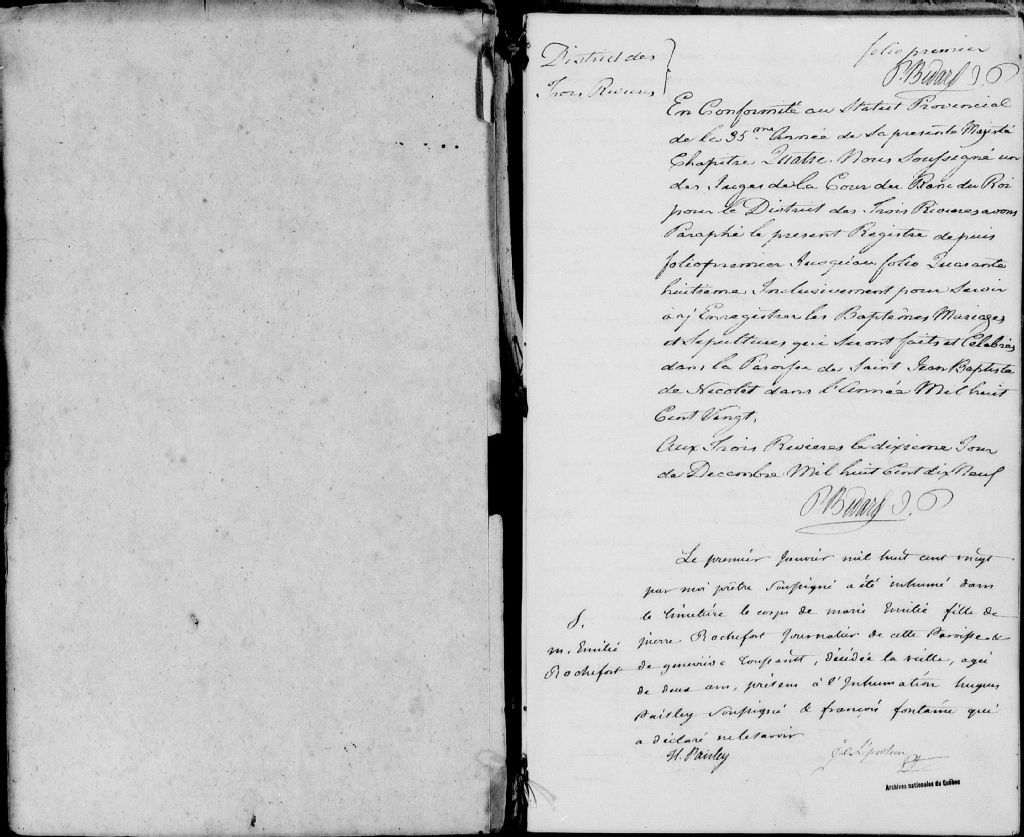 folio premier
District des
Trois Rivieres
P. Bedard J. P
En Conformité au Statut Provincial
de la 35.me Année de Sa presente Majesté
Chapitre Quatre. Nous Soussigné un
des Juges de la Cour du Banc du Roi
pour le District des Trois Rivieres avons
Paraphé le present Registre depuis
folio premier Jusqu'au folio Quarante
huitieme Inclusivement pour Servir
a y Enregistrer les Baptêmes Mariages
et Sepultures qui Seront faits et Celebrés
dans la Paroisse de Saint Jean Baptiste
de Nicolet dans l'Année Mil huit
Cent Vingt.
Aux Trois Rivieres le dixieme Jour
de Decembre Mil huit Cent dix Neuf
P. Bedard J. P
Le premier Janvier mil huit cent vingt
par moi prêtre Soussigné a été inhumé dans
le Cimétière le corps de marie Emilie fille de
S.
m. Emilie
Rochefort
pierre Rochefort Journalier de cette Paroisse &
de geneviève , décédée la veille, agée
de deux ans, présens à l'Inhumation hugues
Paisley Soussigné & françois fontaine qui
a déclaré ne le savoir
H. Paisley
ptre
Archives nationales du Québec